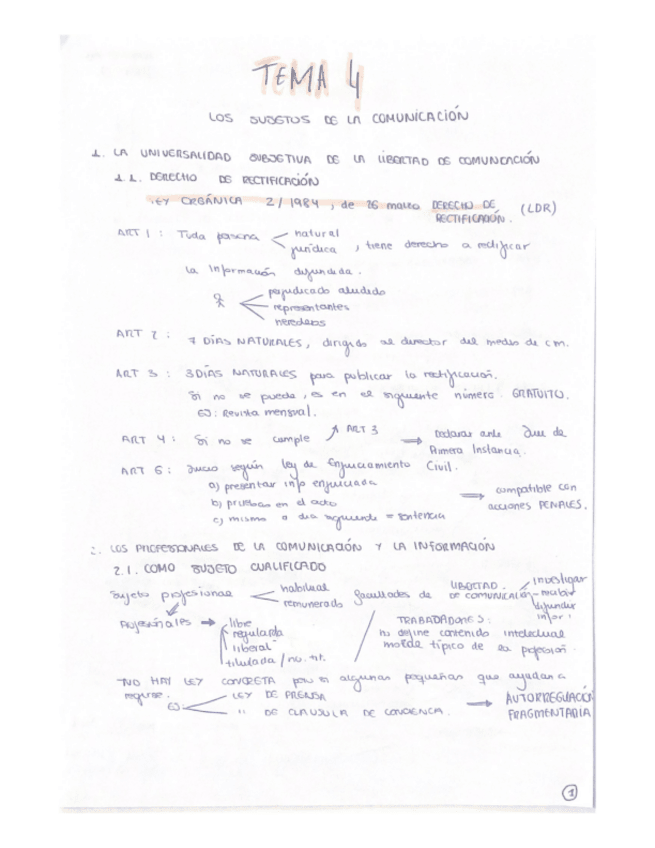 TEMA 4
LOS SUJETOS DE LA COMUNICACIÓN
1. LA UNIVERSALIDAD SUBJETIVA DE LA LIBERTAD DE COMUNICACIÓN
1.1. DERECHO DE RECTIFICACIÓN
LEY ORGÁNICA 2/1984, de 26 marzo DERECHO DE (LDR)
RECTIFICACIÓN.
ART 1: Toda persona natural
jurídica, tiene derecho a rectificar
la información difundida.
perjudicado aludido
representantes
herederos
ART 2: 7 DÍAS NATURALES, dirigido al director del medio de cm.
ART 3: 3 DÍAS NATURALES para publicar la rectificación.
Si no se puede, es en el siguiente número. GRATUITO.
EJ: Revista mensual.
ART 4: Si no se cumple ↗ ART 3 → Declarar ante Juez de
Primera Instancia.
ART 6: Juicio según ley de Enjuiciamiento Civil.
a) presentar info enjuiciada
b) pruebas en el acto → compatible con
acciones PENALES.
c) mismo o día siguiente = sentencia
2. LOS PROFESIONALES DE LA COMUNICACIÓN Y LA INFORMACIÓN
2.1. COMO SUJETO CUALIFICADO
Sujeto profesional habitual
remunerado facultades de LIBERTAD
DE COMUNICACIÓN investigar
recibir
difundir
infor.
PROFESIONALES → libre
regulada
liberal
titulada / no. tit.
TRABAJADORES:
no define contenido intelectual
molde típico de la profesión.
NO HAY LEY CONCRETA pero si algunas pequeñas que ayudan a
regirse.
EJ: LEY DE PRENSA
" DE CLAUSULA DE CONCIENCA. → AUTORREGUACIÓN
FRAGMENTARIA
1